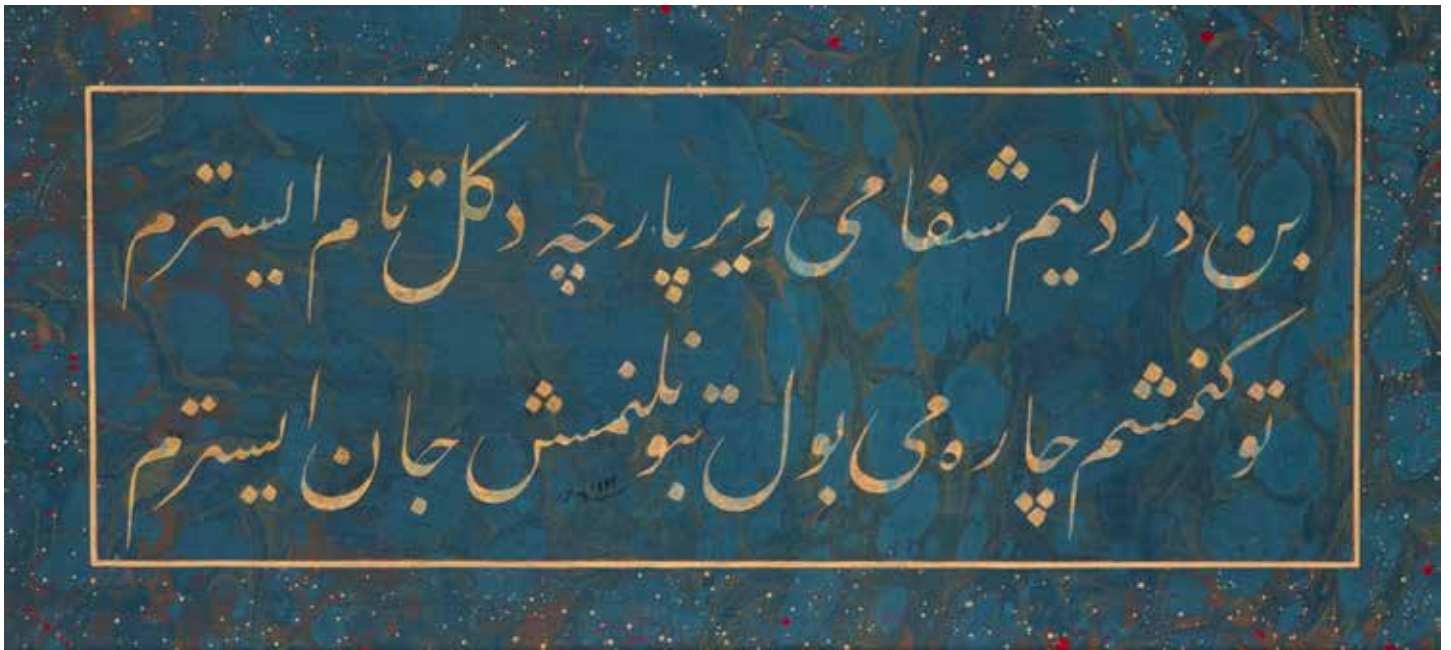 بن دردلیم شفامی ویر پارچه دکل تام ایسترم
توکنمشم چاره می بول تبو بلنمش جان ایسترم